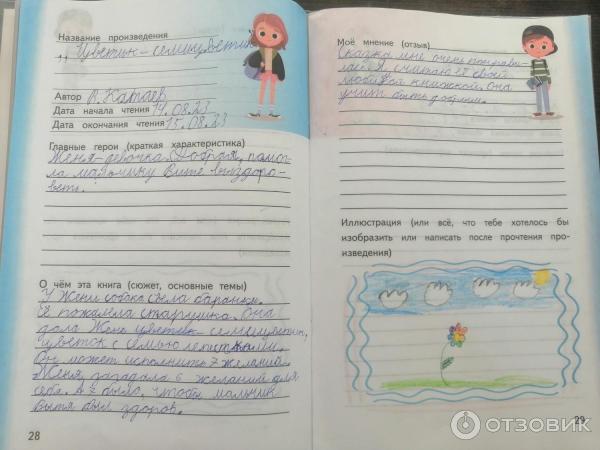 Название произведения
"Цветик-семицветик
Автор В. Катаев
Дата начала чтения 14.08.23
Дата окончания чтения 15.08.23
Главные герои (краткая характеристика)
Женя-девочка. Добрая, помог-
ла мальчику Вите выздоро-
веть.
О чём эта книга (сюжет, основные темы)
У Жени собака съела баранки.
Её пожалела старушка. Она
дала Жене цветик-семицветик,
цветок с семью лепестками.
Он может исполнить 7 желаний.
Женя загадала 6 желаний для
себя. А 7 было, чтобы мальчик
Витя был здоров.
28
Моё мнение (отзыв)
Сказка мне очень понрави-
лась. Я считаю её своей
любимой книжкой. Она
учит быть добрым.
Иллюстрация (или всё, что тебе хотелось бы
изобразить или написать после прочтения про-
изведения)
29
ОТЗОВИК